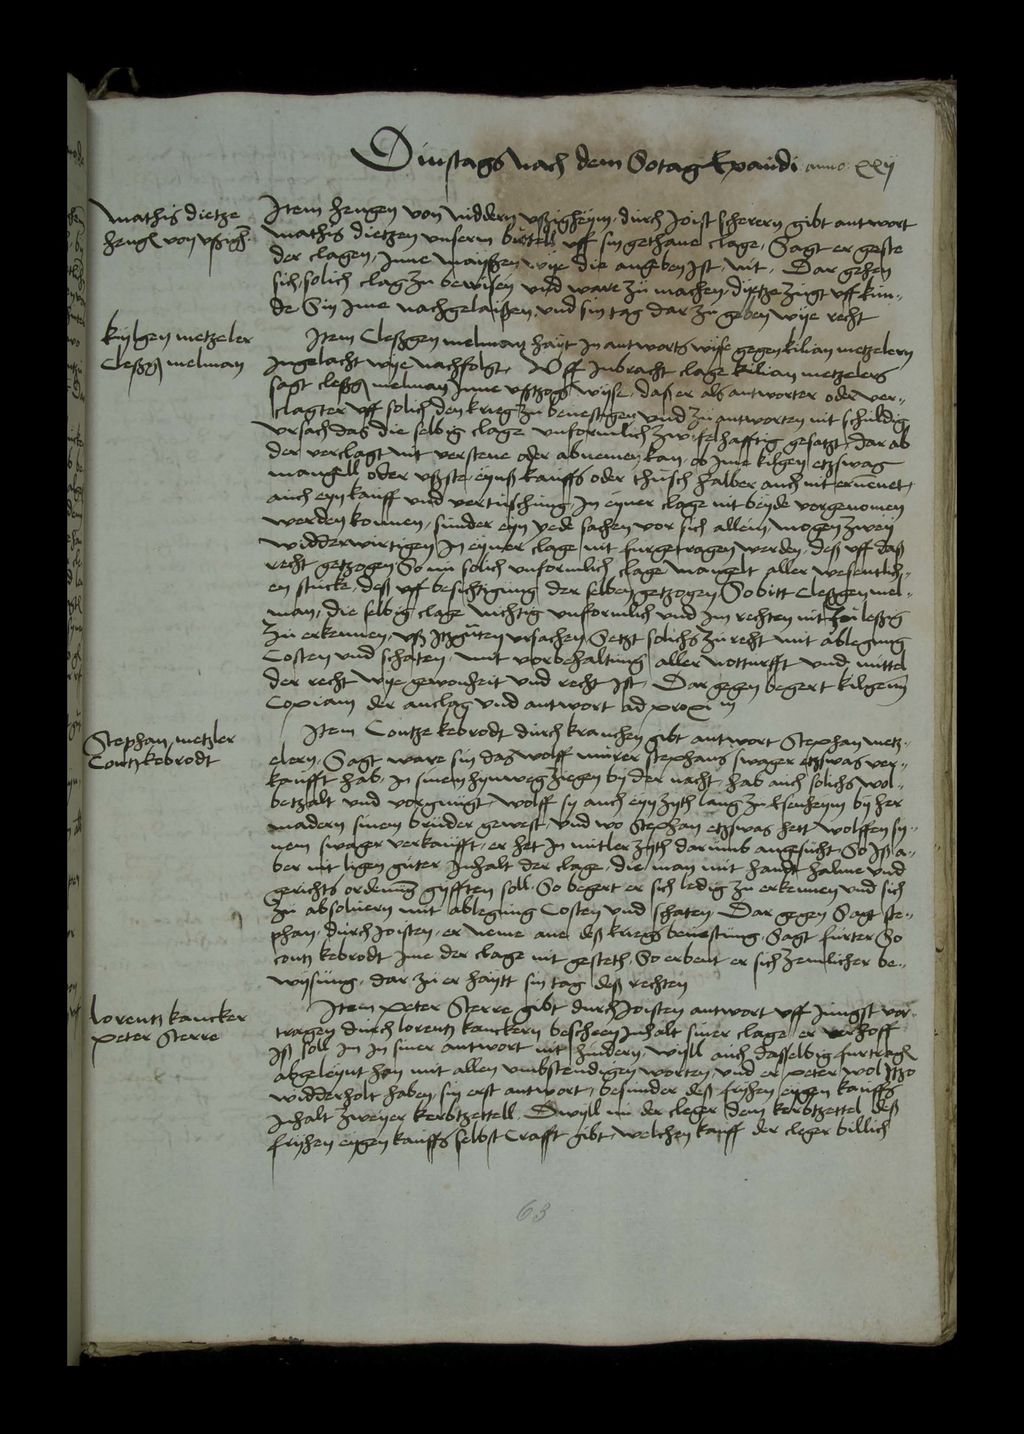 Dinstags nach dem Sotag Exaudi anno xxij
Mathis dietze
Hengen von
Item Hengen von niddern ußigheym durch Joist scherern gibt antwort
Mathis dietzen unserm buttell uff sin gethane clage, Sagt er geste
der clagen, Inne mayssen wye die angeben ist, nit, Dar gehen
sich solich clag zu bewisen und ware zu machen, dietze zugt uff kun-
de Sin Ime nachgelaissen, und sin tag dar zu geben wye recht
Kylgen metzeler
Cleßgen melman
Item Cleßgen melman hayt In antworts wise gegen kilian metzelern
Ingelacht wye nachfolgt, Uff Inbracht clage kilian metzelers
sagt cleßgen melman Inne ußzogs wyse, daß er als antworter oder ver-
clagter uff solich den krieg zu bevestigen und zu antworten nit schuldig
ursach das die selbig clage unformlich zwifelhafftig gesatzt, dar ab
der verclagt nit verstene oder abnemen kan, ob Ime kilgen etzswas
mangell oder ußste eynß kauffs oder thusch halber auch nit ernenet,
auch eyn kauff und vertusching In eyner clage nit beyde vorgenomen
werden konnen, sunder eyn yede sachen vor sich allein, mogen zwey
widderwirtigen In eyner clage nit furgetragen werden, deß uff daß
recht getzogen So nu solich unformlich clage mangelt aller wesentlich-
en stucke, deß uff besichtigung der selben getzogen, So bitt Cleßgen mel-
man, die selbig clage nichtig unformlich und Im rechten nit zu leßig
zu erkennen, uß Itzguten ursachen, Setzt solichs zu recht mit ablegung
Costen und schaten, mit vorbehaltung aller notturfft und mittel
der recht wye gewonheit und recht ist, Dar gegen begert kilgenn
Copiam der anclag und antwort ad proximum
Stephan metzler
Contz kebrodt
Item Contze kebrodt durch kranchen gibt antwort Stephan metz-
elern, Sagt ware sin das wolff murer stephans swager etzswas ver-
kaufft hab, In sinem hynweg ziegen by der nacht, hab auch solichs wol
betzalt und vorgnugt, wolff sy auch eyn zyth lang zu Isenheym by her
madern sinem bruder gewest, und wo Stephan etzswas hett wolffen sy-
nem swager verkaufft, er het In mitler zyth darumb angesucht, So iß a-
ber nit ligen guter Inhalt der clage, die man mit handt halme und
gerichts ordenung gyfften soll, So begert er sich ledig zu erkennen und sich
zu absolvern mit ablegung Costen und schaten, Dar gegen Sagt ste-
phan, durch Joisten, er neme ane deß kriegs bevestung, Sagt furter So
contz kebrodt Ime der clage nit gesteth, So erbeut er sich zemlicher be-
wysung, dar zu er haytt sin tag deß rechten
Lorentz kancker
Peter Sterre
Item peter Sterre gibt durch Joisten antwort uff Jungst vor-
tragen durch lorentz kanckern bescheen Inhalt siner clage, er verhoff
Iß soll Im In siner antwort nit hindern, wyll auch dasselbig furtragen
abgeleynt han mit allen umbstendigen worten, und er peter wol Itzo
widderholt haben, sin erst antwort, besunder deß fryhen eygen kauffs
Inhalt zweyer kerbtzettell, Dwyll nu der cleger dem kerbtzettel deß
fryhen eygen kauffs selbst Crafft gibt, welchen kauff der cleger billich
63